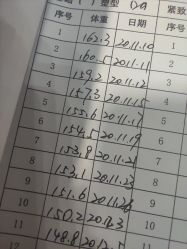 塑型
紧致
序号 体重 日期 序号
1 162.3 20.11.10 1
2 160.5 20.11.11 2
3 159.2 20.11.12 3
4 157.3 20.11.15 4
5 155.6 20.11.17 5
6 154.5 20.11.19 6
7 153.8 20.11.21 7
8 153.1 20.11.23 8
9 151.6 20.11.26 9
10 150.2 20.12.3 10
11 148.8 20.12.5 11
12